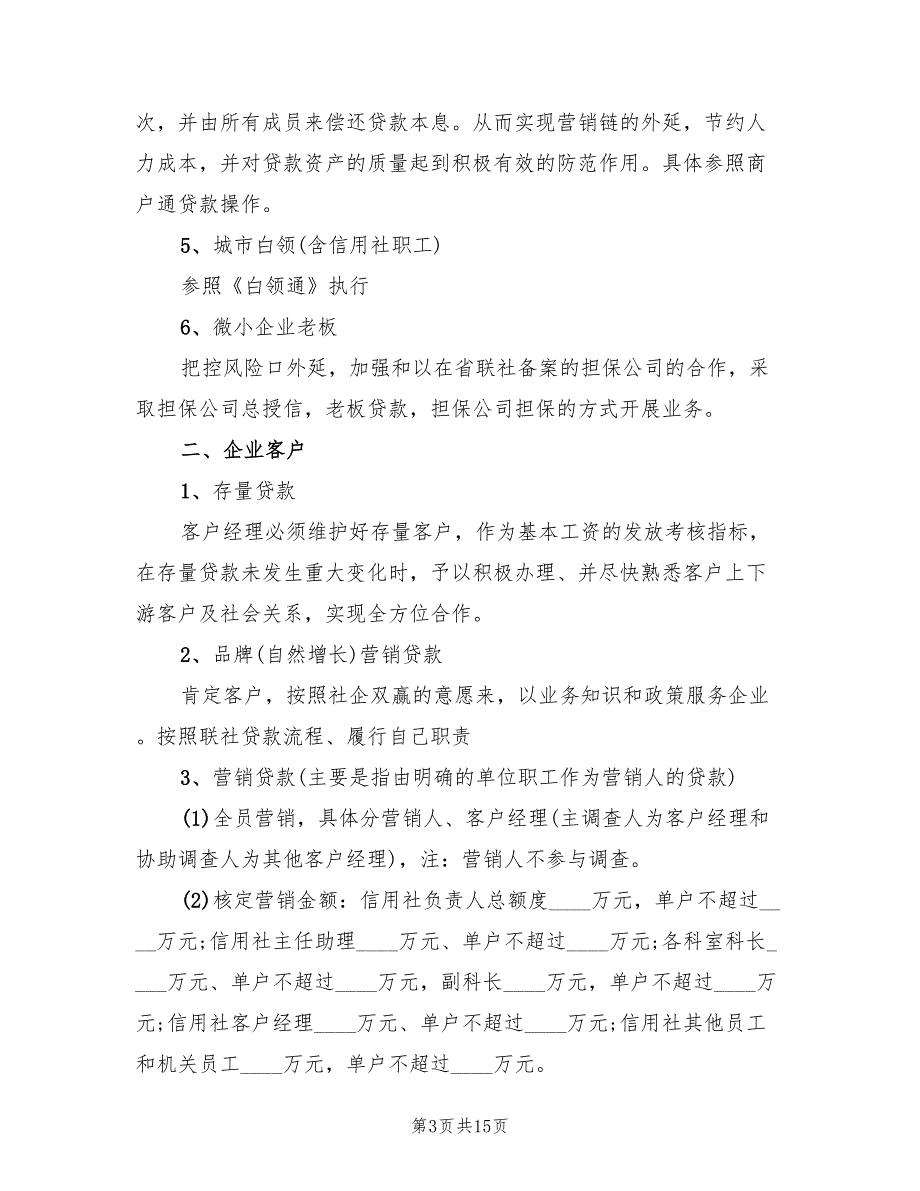 次，并由所有成员来偿还贷款本息。从而实现营销链的外延，节约人
力成本，并对贷款资产的质量起到积极有效的防范作用。具体参照商
户通贷款操作。
5、城市白领(含信用社职工)
参照《白领通》执行
6、微小企业老板
把控风险口外延，加强和以在省联社备案的担保公司的合作，采
取担保公司总授信，老板贷款，担保公司担保的方式开展业务。
二、企业客户
1、存量贷款
客户经理必须维护好存量客户，作为基本工资的发放考核指标，
在存量贷款未发生重大变化时，予以积极办理、并尽快熟悉客户上下
游客户及社会关系，实现全方位合作。
2、品牌(自然增长)营销贷款
肯定客户，按照社企双赢的意愿来，以业务知识和政策服务企业
。按照联社贷款流程、履行自己职责
3、营销贷款(主要是指由明确的单位职工作为营销人的贷款)
(1)全员营销，具体分营销人、客户经理(主调查人为客户经理和
协助调查人为其他客户经理)，注：营销人不参与调查。
(2)核定营销金额：信用社负责人总额度____万元，单户不超过__
__万元;信用社主任助理____万元、单户不超过____万元;各科室科长_
___万元、单户不超过____万元，副科长____万元，单户不超过____万
元;信用社客户经理____万元、单户不超过____万元;信用社其他员工
和机关员工____万元，单户不超过____万元。
第3页共15页